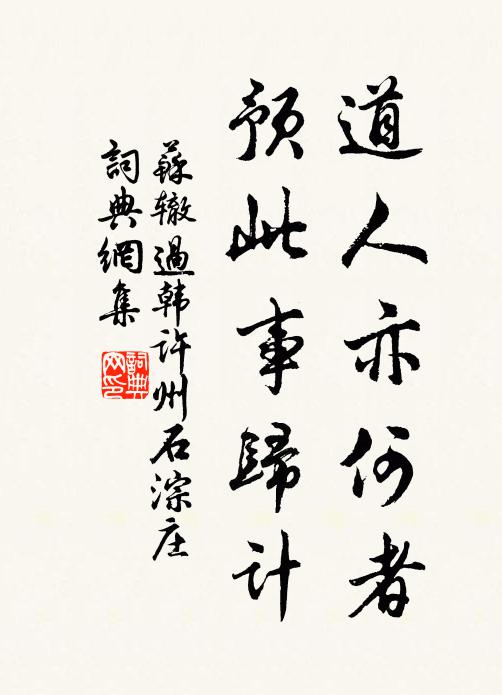 道人亦何者
預此事歸計
蘇辙過韩许州石淙庄
詞典網集
詞典
网印